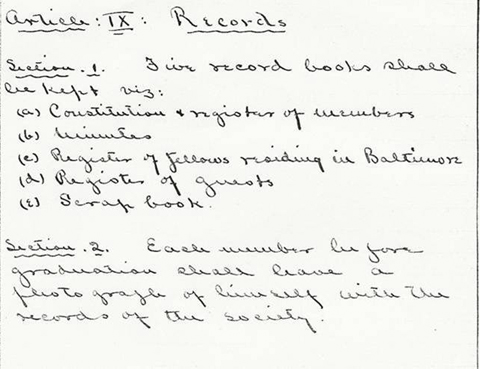 Article: IX: Records
Section. 1. Five record books shall
be kept viz:
(a) Constitution & register of members
(b) Minutes
(c) Register of fellows residing in Baltimore
(d) Register of guests
(e) Scrap book.
Section. 2. Each member before
graduation shall leave a
photograph of himself with the
records of the society.